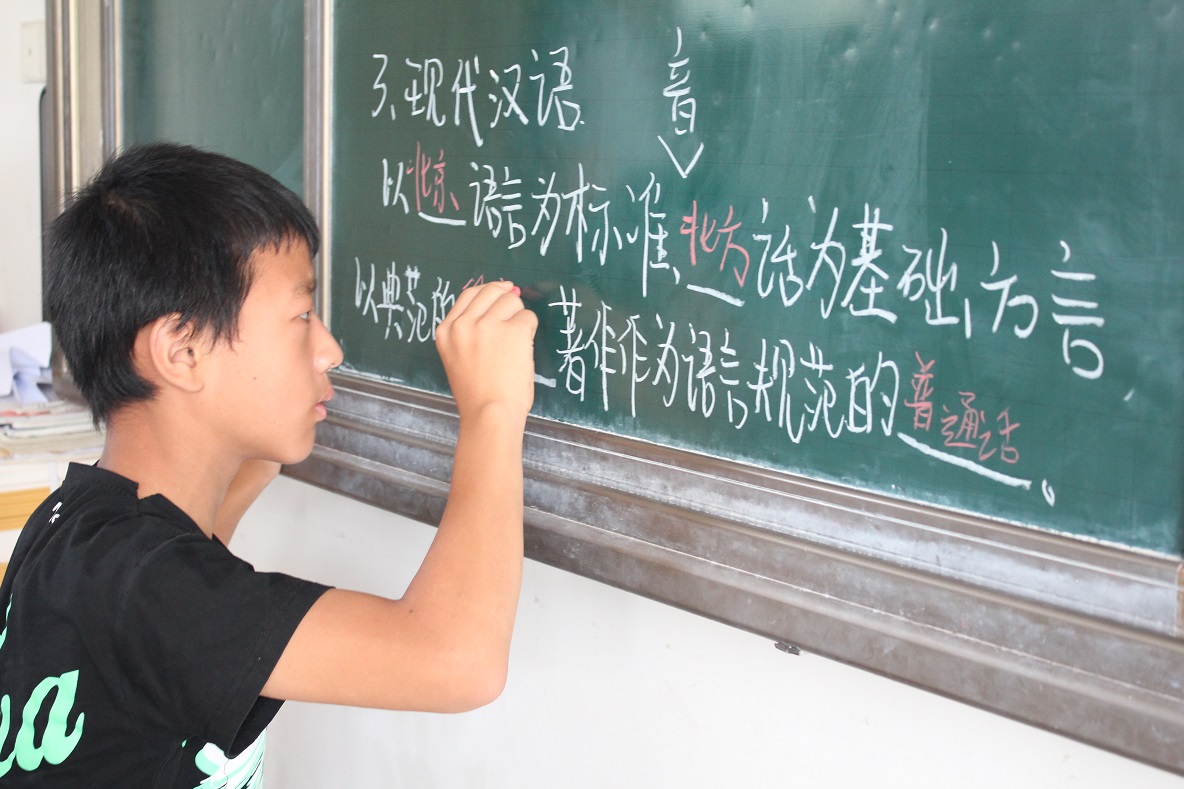 3、现代汉语
音
以北京语言为标准、北方话为基础、方言
以典范的 著作作为语言规范的普通话。